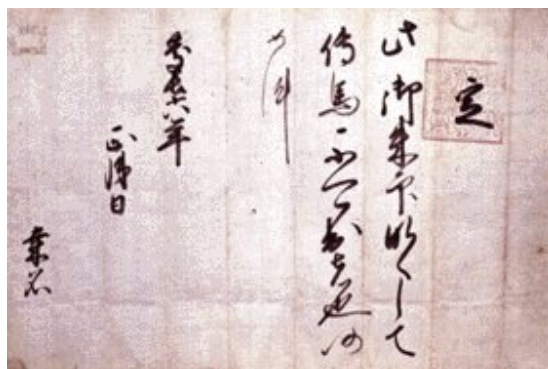 定
此御朱印なくして
傳馬不可出者也仍
如件
慶長六年
正月日
桑名